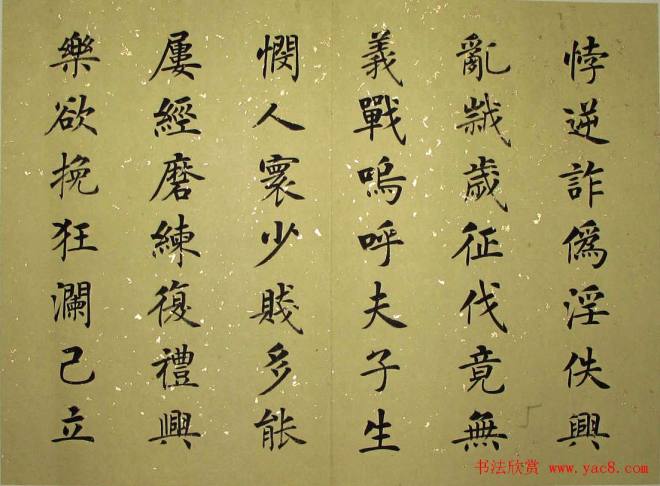 悖逆詐僞淫佚興
亂韱歲征伐竟無
義戰嗚呼夫子生
憫人寰少賤多能
屢經磨練復禮興
樂欲挽狂瀾己立
书法欣赏 www.yac8.com